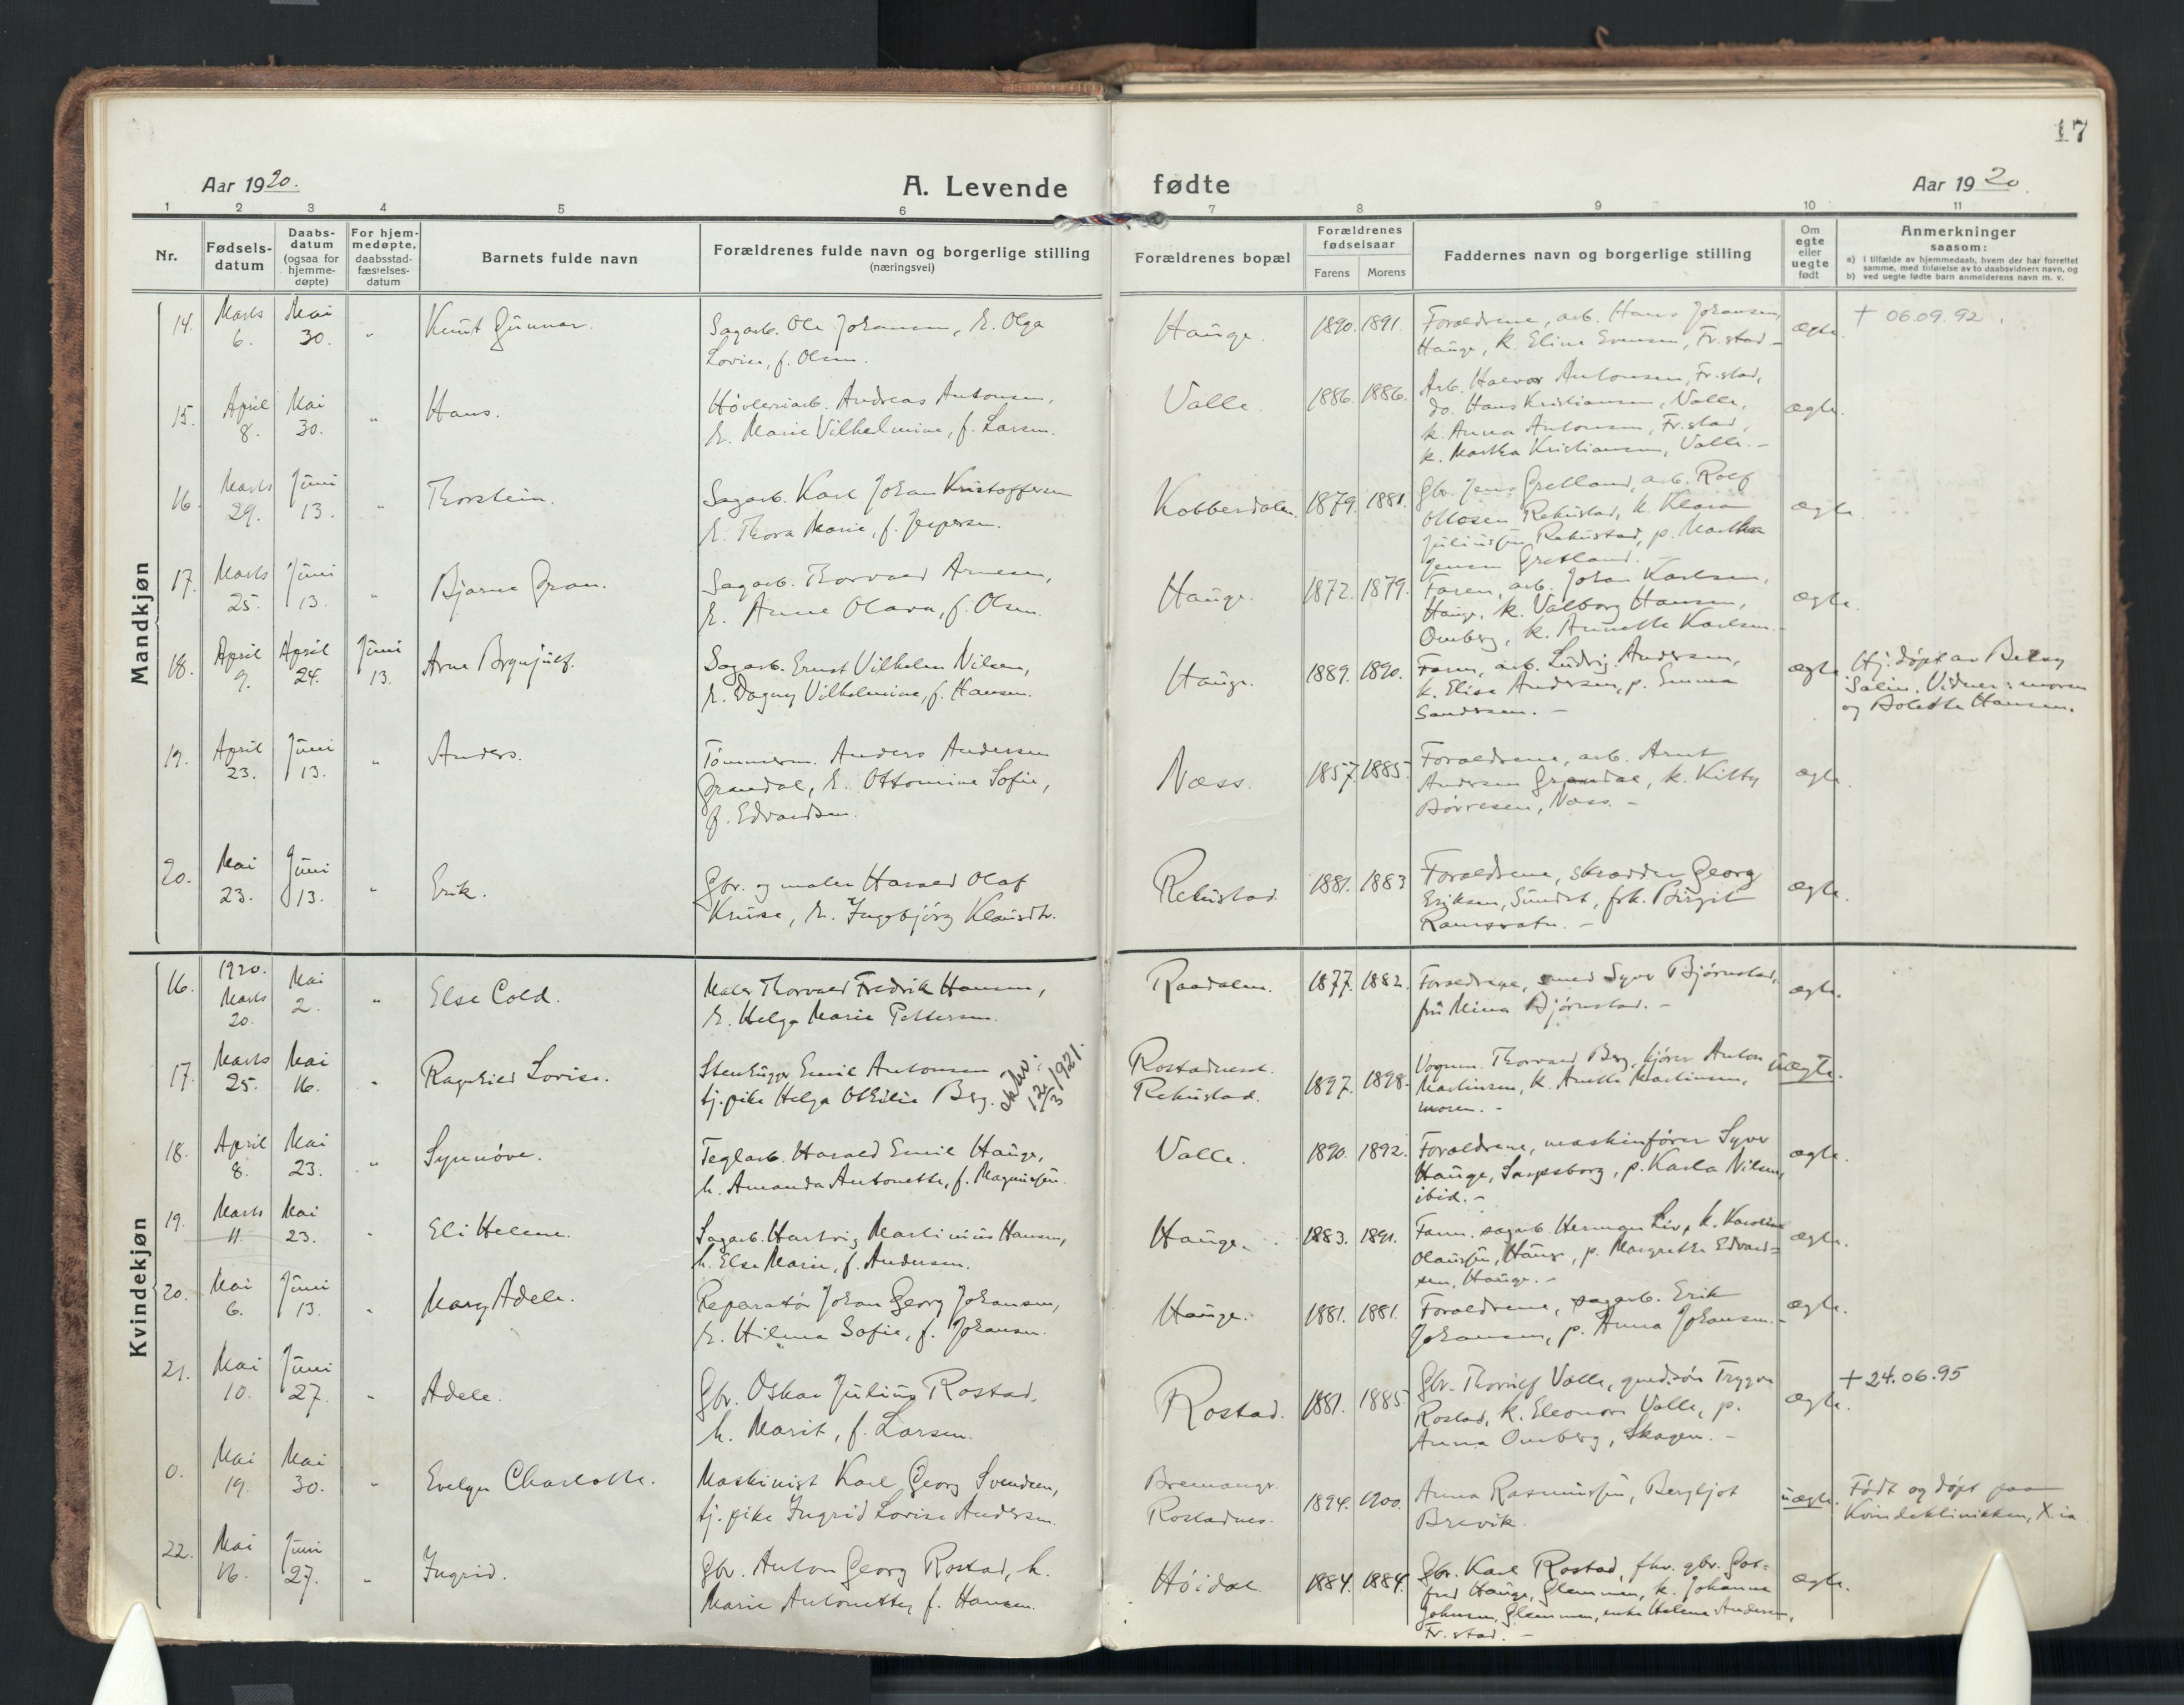 17
Aar 1920.
A. Levende fødte
Aar 1920.
1 2 3 4 5 6 7 8 9 10 11
Nr.
Fødsels-
datum
Daabs-
datum
(ogsaa for
hjemme-
døpte)
For hjem-
medøpte,
daabsstad-
fæstelses-
datum
Barnets fulde navn
Forældrenes fulde navn og borgerlige stilling
(næringsvei)
Forældrenes bopæl
Forældrenes
fødselsaar
Farens Morens
Faddernes navn og borgerlige stilling
Om
egte
eller
uegte
født
Anmerkninger
saasom:
a) i tilfælde av hjemmedaab, hvem der har forrettet
samme, med tilføielse av to daabsvidners navn, og
b) ved uegte fødte barn anmelderens navn m. v.
Mandkjøn
14. Marts 6. Mai 30. " Knut Gunnar.
Sagarb. Ole Johansen, h. Olga
Lovise, f. Olsen.
Hauge. 1890. 1891.
Forældrene, arb. Hans Johansen,
Hauge, k. Eline Evensen, Fr.stad.-
ægte.
+ 06.09.92.
15. April 8. Mai 30. " Hans.
Høvleriarb. Andreas Antonsen,
h. Marie Vilhelmine, f. Larsen.
Valle. 1886. 1886.
Arb. Halvor Antonsen, Fr.stad,
do. Hans Kristiansen, Valle,
k. Anna Antonsen, Fr.stad,
k. Martha Kristiansen, Valle.-
ægte.
16. Marts 29. Juni 13. " Thorstein.
Sagarb. Karl Johan Kristoffersen
h. Thora Marie, f. Jespersen.
Kobberdalen. 1879. 1881.
Gbr. Jens Gretland, arb. Rolf
Ottosen Rekustad, k. Klara
Juliussen Rekustad, p. Martha
Jensen Gretland.
ægte.
17. Marts 25. Juni 13. " Bjarne Gran.
Sagarb. Thorvald Arnesen,
h. Anne Olava, f. Olsen.
Hauge. 1872. 1879.
Faren, arb. Johan Karlsen,
Hauge, k. Valborg Hansen,
Omberg, k. Annette Karlsen.-
ægte.
18. April 9. April 24. Juni 13. Arne Brynjulf.
Sagarb. Ernst Vilhelm Nilsen,
h. Dagny Vilhelmine, f. Hansen.
Hauge. 1889. 1890.
Faren, arb. Ludvig Andersen,
k. Elise Andersen, p. Emma
Sandersen.-
ægte.
Hj. døpt av Betsy
Salin. Vidner: moren
og Bolette Hansen.
19. April 23. Juni 13. " Anders.
Tømmerm. Anders Andersen
Grandal, h. Ottomine Sofie,
f. Edvardsen.
Næss. 1857. 1885.
Forældrene, arb. Arnt
Andersen Grandal, k. Kitty
Børresen, Næss.-
ægte.
20. Mai 23. Juni 13. " Erik.
Gbr. og maler Harald Olaf
Kruse, h. Ingebjørg Klausdtr.
Rekustad. 1881. 1883
Forældrene, skrædder Georg
Eriksen, Sundet, frk. Birgit
Ramsvatn.-
ægte.
Kvindekjøn
16. 1920. Marts 20. Mai 2. " Else Cold.
Maler Thorvald Fredrik Hansen,
h. Helga Marie Pettersen.
Raadalen. 1877. 1882.
Forældrene, smed Syver Bjørnstad,
fru Mina Bjørnstad.-
ægte.
17. Marts 25. Mai 16. " Ragnhild Lovise.
Stenhugger Emil Antonsen
tj.pike Helga Othilie Berg.
12/3 1921.
Rostadnesd.
Rekustad. 1897. 1898.
Vognm. Thorvald Berg, kjører Anton
Martinsen, k. Anette Martinsen,
moren.-
uægte.
18. April 8. Mai 23. " Synnøve.
Teglarb. Harald Emil Hauge,
h. Amanda Antonette, f. Magnussen.
Valle. 1890. 1892.
Forældrene, maskinfører Syver
Hauge, Sarpsborg, p. Karla Nilsen,
ibid.-
ægte.
19. Marts 11. Mai 23. " Eli Helene.
Sagarb. Hartvig Martinius Hansen,
h. Else Marie, f. Andersen.
Hauge. 1883. 1891.
Faren, sagarb. Herman Liv, k. Karoline
Olaussen, Hauge, p. Margrethe Edvard=
sen, Hauge.-
ægte.
20. Mai 6. Juni 13. " Mary Adele.
Reparatør Johan Georg Johansen,
h. Hilma Sofie, f. Johansen.
Hauge. 1881. 1881.
Forældrene, sagarb. Erik
Johansen, p. Anna Johansen.-
ægte.
21. Mai 10. Juni 27. " Adele.
Gbr. Oskar Julius Rostad,
h. Marit, f. Larsen.
Rostad. 1881. 1885.
Gbr. Thorulf Valle, grdsøn Trygve
Rostad, k. Eleonora Valle, p.
Anna Omberg, Skagen.-
ægte.
+ 24.06.95
0. Mai 19. Mai 30. " Evelyn Charlotte.
Maskinist Karl Georg Svendsen,
tj.pike Ingrid Lovise Andersen.
Bremanger.
Rostadnes. 1894. 1900.
Anna Rasmussen, Bergljot
Brevik.
uægte.
Født og døpt paa
Kvindeklinikken, X.ia
22. Mai 16. Juni 27. " Ingrid.
Gbr. Anton Georg Rostad, h.
Marie Antonette, f. Hansen.
Høidal. 1884. 1884.
Gbr. Karl Rostad, fhv. gbr. Got=
fred Hauge, Glemmen, k. Johanne
Johnsen, Glemmen, enke Helene Andersen,
Fr.stad.-
ægte.